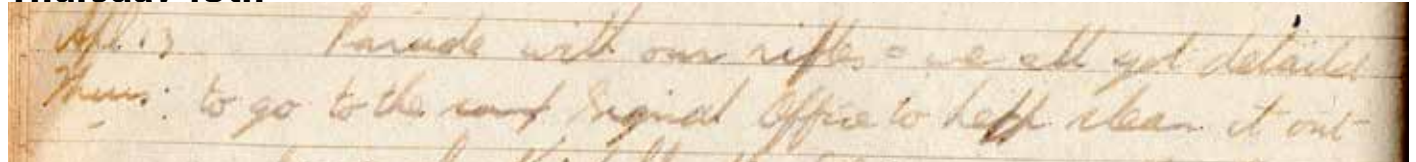 Thursday 13th
Apl. 13 Parade with our rifles = we all get detailed
Thurs: to go to the Signal Office to help clean it out